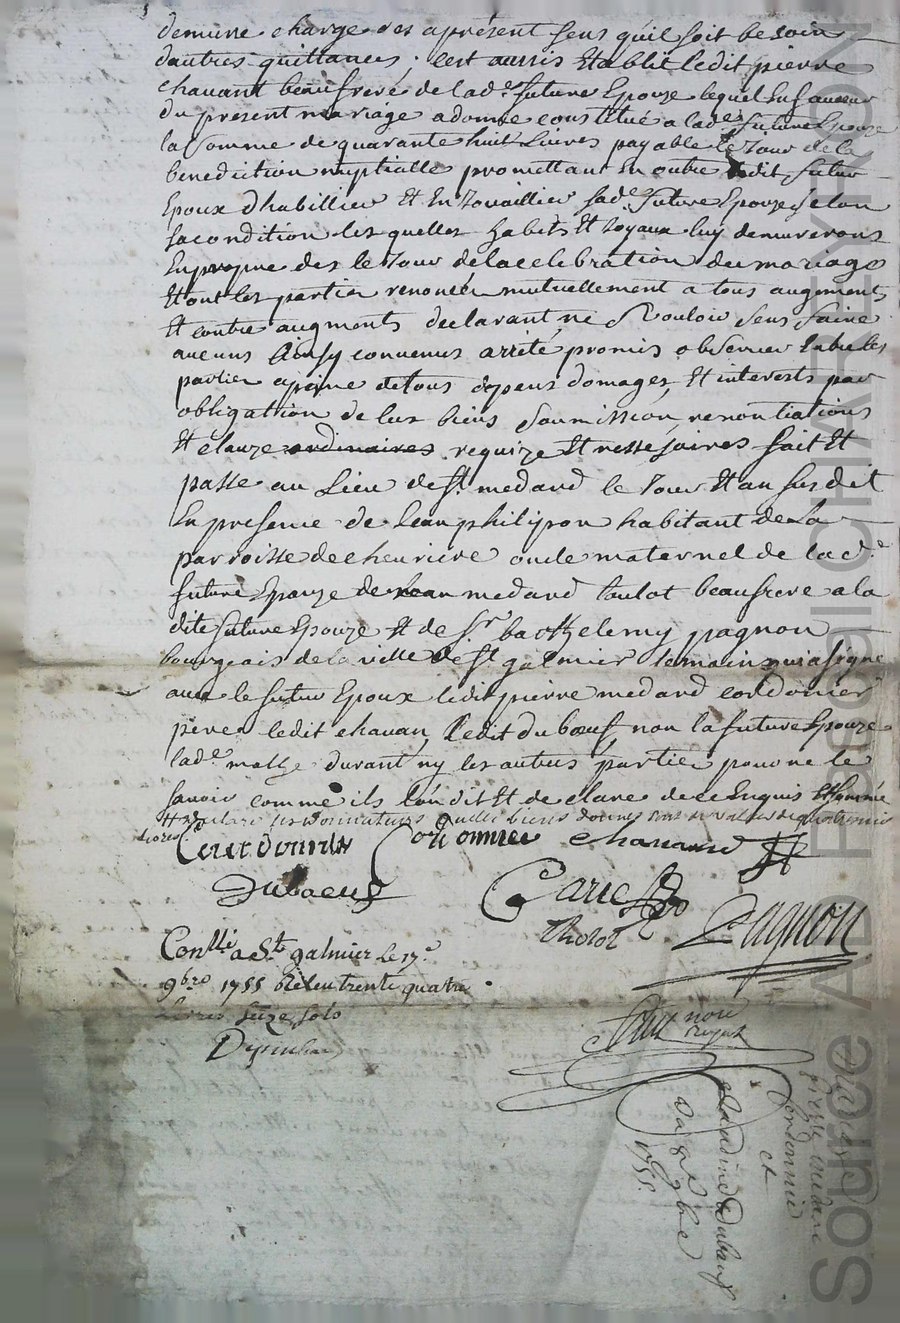 demeure chargé des aprésent sens quil soit besoin
dautres quittances ; cest aussis Etablit ledit pierre
chavant beaufrere de lade. future Epouze lequel En faveur
du present mariage a donné constitué a lade. future Epouze
la somme de quarante huit Livres payable le Jour de la
benediction nuptialle promettant En outre ledit futur
Epoux dhabillier Et En Jovaillier sade. future Epouze selon
sa condition les quelles habits Et Joyaux luy demureront
En propre des le Jour de la celebration du mariage
Et ont les partie renoncé mutuellement a tous augments
Et contre augments declarant ne Vouloir sens faire
aucuns Ainsy convenus arreté promis observer Entre les
partie apeine de tous depens domages, Et interests par
obligation de lurs biens soumission, renontiations
Et clauze ordinaires requize Et nessesaires fait Et
passe au Lieu de St. medard le Jour Et an susdit
En presence de Jean philipon habitant de La
parroisse de chevriere oncle maternel de la de.
future Epouze de medard toulot beaufrere a la
dite future Epouze Et de Sr. barthelemy pagnon
bourgeais de la ville de St galmier temains qui a signé
avec le futur Epoux ledit pierre medard cordonier
pere, ledit chavan, Ledit duboeuf, non la future Epouze
lade. durant ny les autres partie pour ne le
savoir comme ils lon dit Et declare de ce Enquis Et sommé
Et declare les donnateurs quelles biens donnés
livres
Cordonnier chavand
Dubaeuf
Tholot Pagnon
Conllé a St galmier le 17e.
9bre 1755 Reçeu trente quatre
Livres seize sols

noe
royal
Claudine Dubeuf
et
Cordonnier
Du 9bre
1755.
Source AD Pascal CHAREYRON